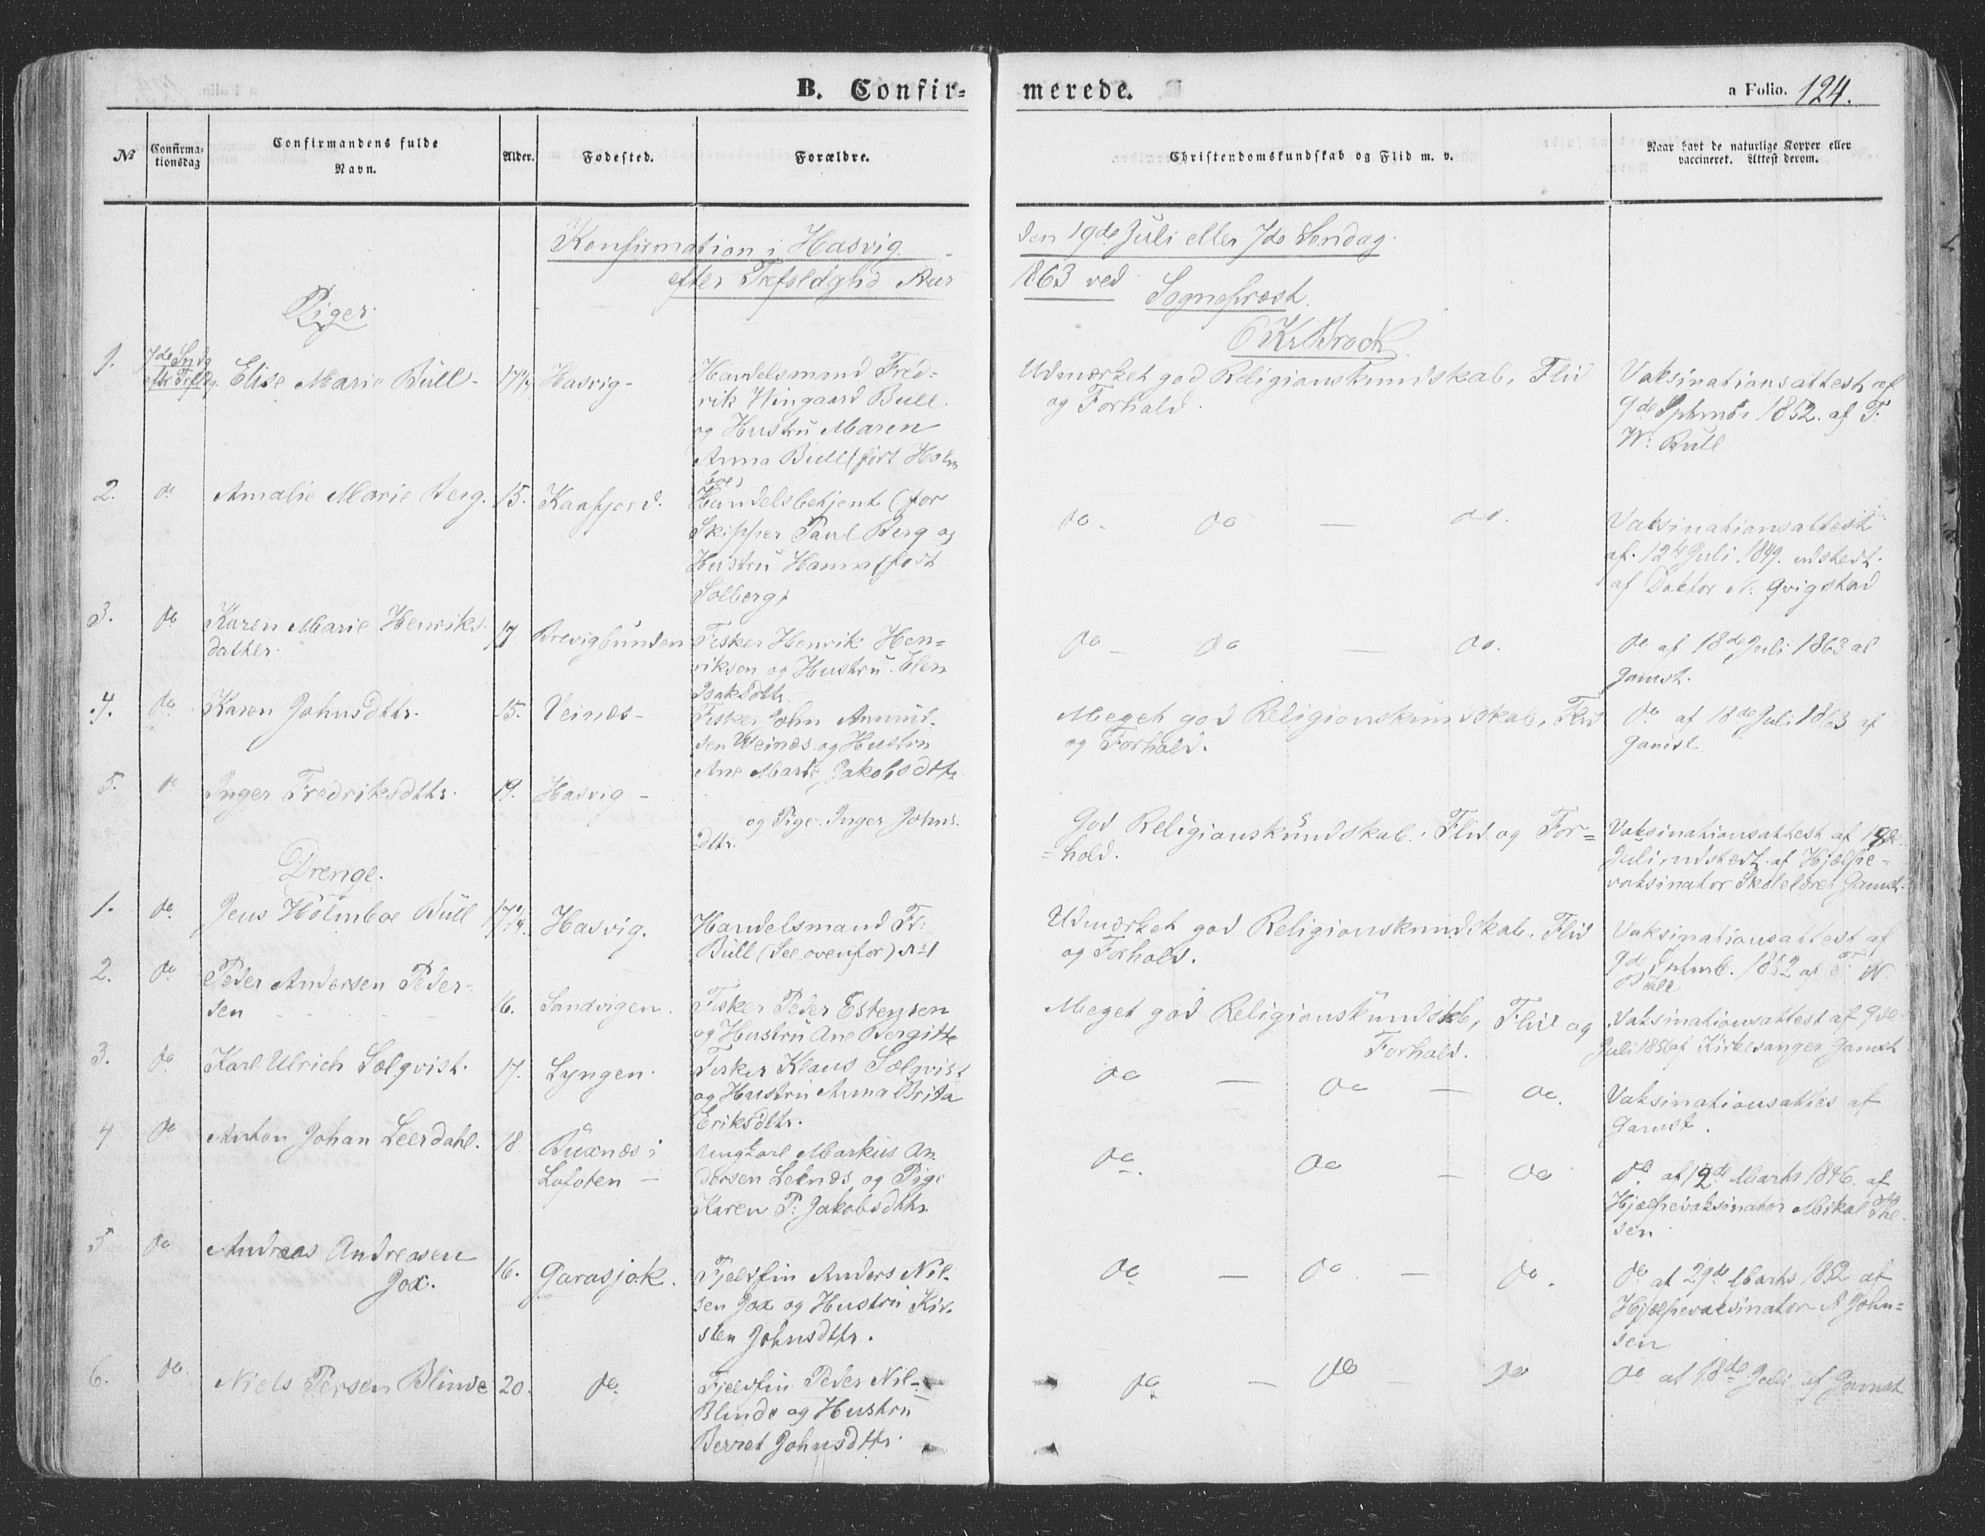 B. Confir-
merede.
a Folio. 124.
№
Confirma-
tionsdag
Confirmandens fulde
Navn.
Alder.
Fødested.
Forældre.
Christendomskundskab og Flid m. v.
Naar havt de naturlige Kopper eller
vaccineret. Attest derom.
Konfirmation i Hasvig
den 19de Juli eller 7de Søndag
efter Trefoldighd Aar
1863 ved
Sogneprest
O Kr Brock
Piger
1.
7de Sndg
eftr Trfldg.
Elise Marie Bull
17¼
Hasvig
Handelsmand Fred-
rik Wingaard Bull
og Hustru Maren
Anna Bull (født Holm
boe)
Udmærket god Religionskundskab, Flid
og Forhold.
Vaksinationsattest af
9de Sptmbr 1852. af F.
W. Bull
2.
do
Amalie Marie Berg.
15.
Kaafjord.
Handelsbetjent (før
Skipper Paul Berg og
Hustru Hanna (født
Solberg)
do - do — do.
Vaksinationsattest
af 12te Juli 1849. udstedt
af Doktor N. Qvigstad
3.
do
Karen Marie Henriks
datter.
17
Brevigbunden
Fisker Henrik Hen-
riksen og Hustru Elen
Isaksdttr.
do - do — do.
do af 18de Juli 1863 af
Gamst.
4.
do
Karen Johnsdttr.
15.
Veines-
Fisker John Amund-
sen Weines og Hustru
Ane Marie Jakobsdttr
Meget god Religionskundskab, Flid
og Forhold.
do af 18de Juli 1863 af
Gamst
5.
do
Inger Fredriksdttr.
19.
Hasvig -
og Pige Inger Johns
dttr.
God Religionskundskab. Flid og For-
hold.
Vaksinationsattest af 18de
Juli udstedt af Hjælpe-
vaksinator Skolelærer Gamst.
Drenge.
1.
do.
Jens Holmboe Bull
17¼.
Hasvig.
Handelsmand Fr:
Bull (See ovenfor) № 1
Udmærket god Religionskundskab. Flid
og Forhold.
Vaksinationsattest af
9de Sptmb. 1852 af F. W
Bull
2.
do
Peder Andersen Peder-
sen
16.
Sandvigen.
Fisker Peder Estensen
og Hustru Ane Bergitte
Meget god Religionskundskb, Flid og
Forhold.
Vaksinationsattest af 9de
Juli 1856 af Kirkesanger Gamst
3.
do
Karl Ulrich Sælqvist.
17.
Lyngen.
Fisker Klaus Sælqvist
og Hustru Anna Brita
Eriksdttr.
do — do — do.
Vaksinationsattes af
Gamst.
4
do
Anton Johan Leerdahl.
18
Buxnæs i
Lofoten —
Ungkarl Markus An
dersen Leknes og Pige
Karen P. Jakobsdttr
do. do — do
do. af 12de Marts 1846. af
Hjælpevaksinator Mikal
sen
5
do
Andreas Andreasen
Jox.
16.
Garasjok.
Fjeldfin Anders Nil-
sen Jox og Hustru Kir-
sten Johnsdttr.
do — do — do.
do af 29de Marts 1852 af
Hjælpevaksinator A John-
sen
6.
do.
Niels Persen Blinde
20.
do.
Fjeldfin Peder Nil-
Blinde og Hustru
Berret Johnsdttr.
do — do — do
do af 18de Juli af Gamst